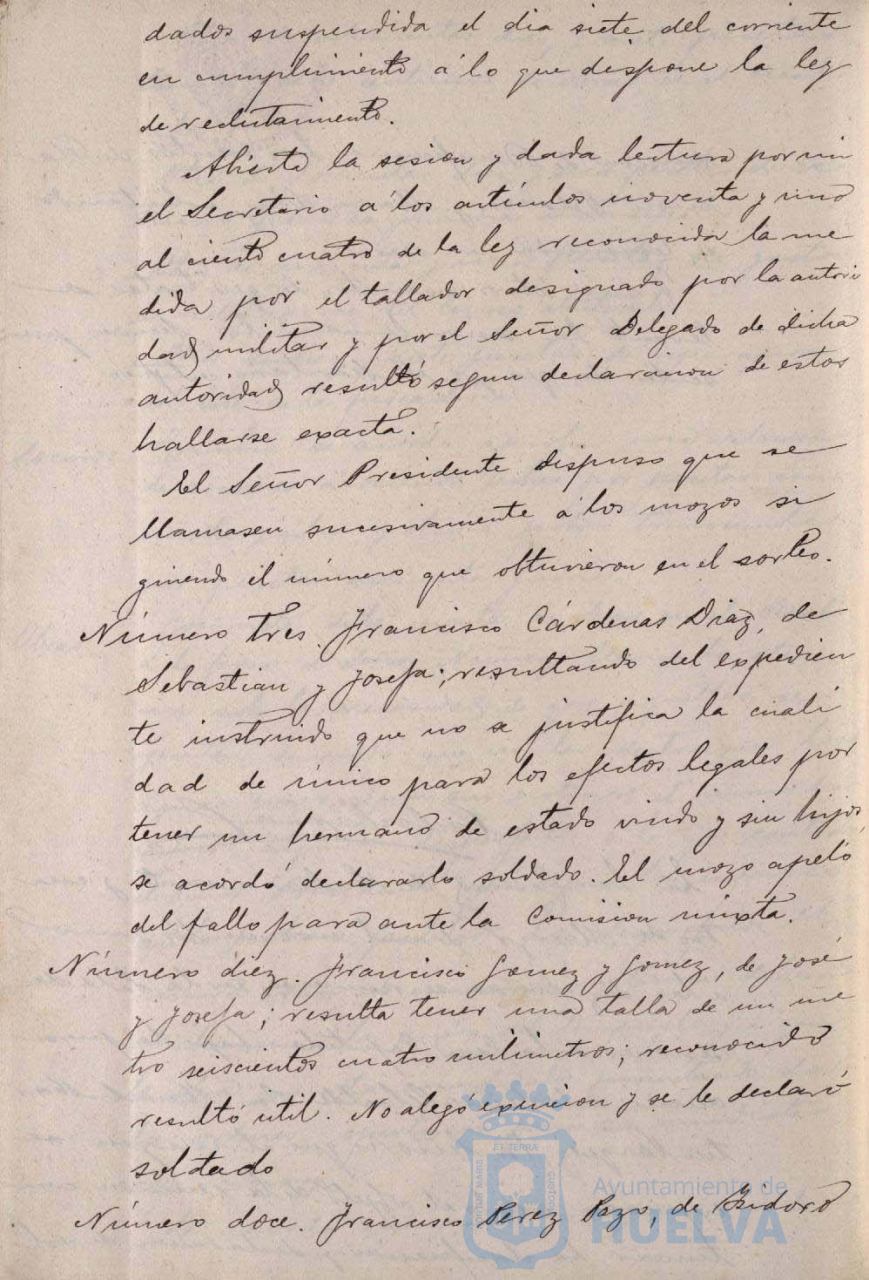 dados suspendida el dia siete del corriente
en cumplimiento á lo que dispone la ley
de reclutamiento.
Abierta la sesion y dada lectura por mi
el Secretario á los artículos noventa y uno
al ciento cuatro de la ley reconocida la me
dida por el tallador designado por la autori
dad militar y por el Señor Delegado de dicha
autoridad resultó segun declaracion de estos
hallarse exacta.
El Señor Presidente dispuso que se
llamasen sucesivamente á los mozos si
giendo el número que obtuvieron en el sorteo.
Número tres. Francisco Cárdenas Diaz, de
Sebastian y Josefa; resultando del expedien
te instruido que no se justifica la cuali
dad de único para los efectos legales por
tener un hermano de estado viudo y sin hijos,
se acordó declararlo soldado. El mozo apeló
del fallo para ante la Comision mixta.
Número diez. Francisco Gomez y Gomez, de José
y Josefa; resulta tener una talla de un me
tro seiscientos cuatro milimetros; reconocido
resultó util. No alegó exencion y se le declaró
soldado
Número doce. Francisco Perez Pazo, de Isidoro
Ayuntamiento de
HUELVA